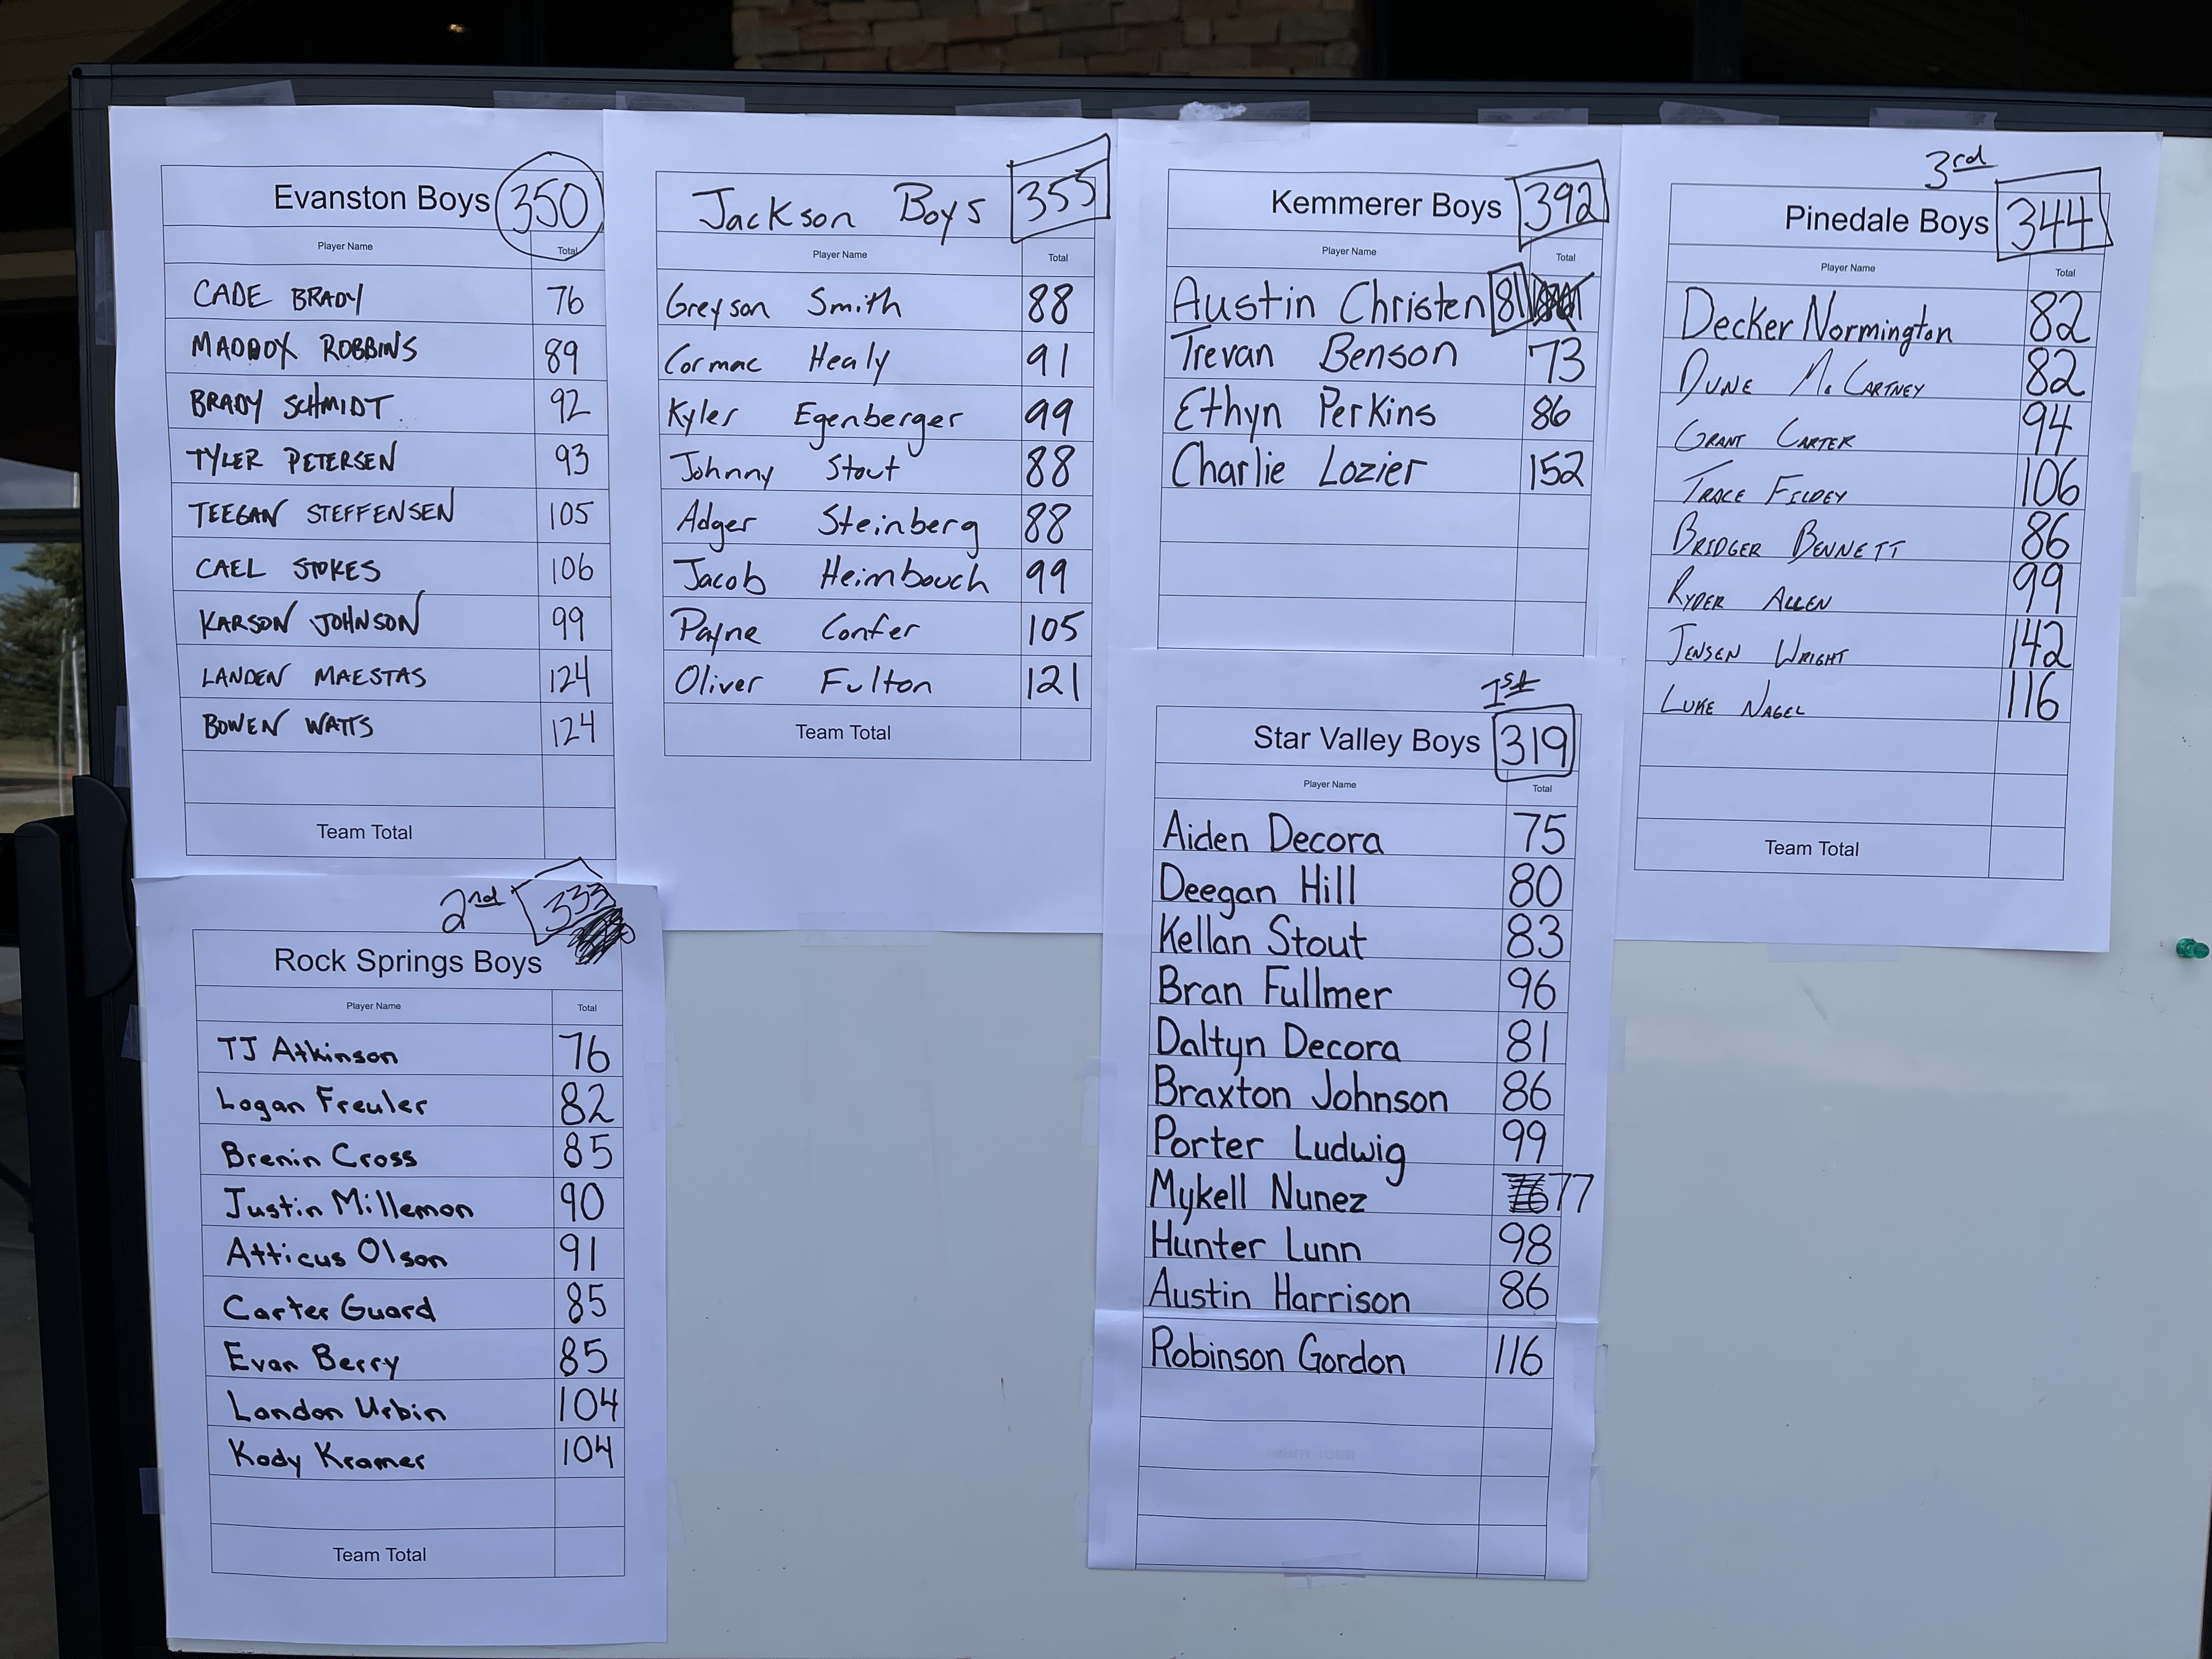 Evanston Boys 350
Player Name Total
CADE BRADY 76
MADDOX ROBBINS 89
BRADY SCHMIDT 92
TYLER PETERSEN 93
TEEGAN STEFFENSEN 105
CAEL STOKES 106
KARSON JOHNSON 99
LANDEN MAESTAS 124
BOWEN WATTS 124
Team Total
Jackson Boys 355
Player Name Total
Greyson Smith 88
Cormac Healy 91
Kyler Egenberger 99
Johnny Stout 88
Adger Steinberg 88
Jacob Heimbouch 99
Payne Confer 105
Oliver Fulton 121
Team Total
Kemmerer Boys 392
Player Name Total
Austin Christen 81
Trevan Benson 73
Ethyn Perkins 86
Charlie Lozier 152
3rd
Pinedale Boys 344
Player Name Total
Decker Normington 82
DUNE McCARTNEY 82
GRANT CARTER 94
TRACE 106
BRIDGER BENNETT 86
RYDER ALLEN 99
JENSEN WRIGHT 142
LUKE NAGEL 116
Team Total
2nd 333
Rock Springs Boys
Player Name Total
TJ Atkinson 76
Logan Freuler 82
Brenin Cross 85
Justin Millemon 90
Atticus Olson 91
Carter Guard 85
Evan Berry 85
Landon Urbin 104
Kody Kramer 104
Team Total
1st
Star Valley Boys 319
Player Name Total
Aiden Decora 75
Deegan Hill 80
Kellan Stout 83
Bran Fullmer 96
Daltyn Decora 81
Braxton Johnson 86
Porter Ludwig 99
Mykell Nunez 77
Hunter Lunn 98
Austin Harrison 86
Robinson Gordon 116